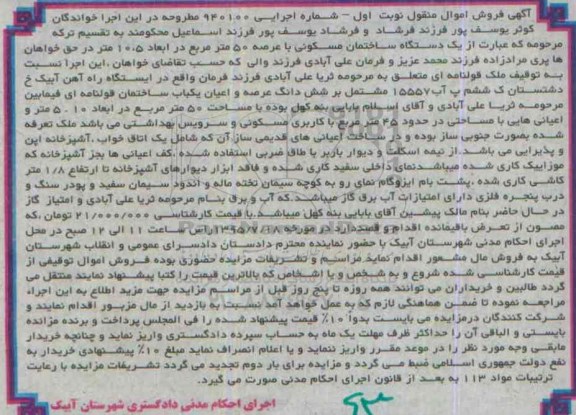 آگهی فروش اموال منقول نوبت اول - شماره اجرایی ۹۴۰۱۰۰ مطروحه در این اجرا خواندگان
کوثر یوسف پور فرزند فرشاد و فرشاد یوسف پور فرزند اسماعیل محکومند به تقسیم ترکه
مرحومه که عبارت از یک دستگاه ساختمان مسکونی با عرصه ۵۰ متر مربع در ابعاد ۱۰.۵ متر در حق خواهان
ها پری مرادزاده فرزند محمد عزیز و فرمان علی آبادی فرزند والی که حسب تقاضای خواهان .این اجرا نسبت
به توقیف ملک قولنامه ای متعلق به مرحومه ثریا علی آبادی فرزند فرمان واقع در ایستگاه راه آهن آبیک خ
دشتستان ک ششم پ آب ۱۵۵۵۷ مشتمل بر شش دانگ عرصه و اعیان یکباب ساختمان قولنامه ای فیمابین
مرحومه ثریا علی آبادی و آقای اسلام بابایی بنه کهل بوده با مساحت ۵۰ متر مربع در ابعاد ۱۰ .۵ متر و
اعیانی هایی با مساحتی در حدود ۴۵ متر مربع با کاربری مسکونی و سرویس بهداشتی می باشد ملک تعرفه
شده بصورت جنوبی ساز بوده و در ساخت اعیانی های قدیمی ساز آن که شامل یک اتاق خواب .آشپزخانه اپن
و پذیرایی می باشد.از نیمه اسکلت و دیوار باربر با طاق ضربی استفاده شده .کف اعیانی ها بجز آشپزخانه که
موزاییک کاری شده میباشدنمای داخلی سفید کاری شده و فاقد ابزار دیوارهای آشپزخانه تا ارتفاع ۱/۸ متر
کاشی کاری شده .پشت بام ایزوگام نمای رو به کوچه سیمان تخته ماله و اندود سیمان سفید و پودر سنگ و
درب پنجره فلزی دارای امتیازات آب برق گاز میباشد.که آب و برق بنام مرحومه ثریا علی آبادی و امتیاز گاز
در حال حاضر بنام مالک پیشین آقای بابایی بنه کهل میباشد.با قیمت کارشناسی ۲۱/۰۰۰/۰۰۰ تومان ،که
مصون از تعرض باقیمانده اقدام و قصد دارد در مورخه ساعت ۱۱ الی ۱۲ صبح در محل
اجرای احکام مدنی شهرستان آبیک با حضور نماینده محترم دادستان دادسرای عمومی و انقلاب شهرستان
آبیک به فروش مال مشعور اقدام نماید مراسم و تشریفات مزایده حضوری بوده فروش اموال توقیفی از
قیمت کارشناسی شده شروع و به شخص و یا اشخاص که بالاترین قیمت را کتبا پیشنهاد نمایند منتقل می
گردد طالبین و خریداران می توانند همه روزه تا پنج روز قبل از مراسم مزایده جهت مزید اطلاع به این اجراء
مراجعه نموده تا ضمن هماهنگی لازم که به عمل خواهد آمد نسبت به بازدید از مال مزبور اقدام نمایند و
شرکت کنندگان درمزایده می بایست بدوا ۱۰٪ قیمت پیشنهاد شده را فی المجلس پرداخت و برنده مزایده
بایستی و الباقی آن را حداکثر ظرف مهلت یک ماه به حساب سپرده دادگستری واریز نماید و چنانچه خریدار
مابقی وجه مورد نظر را در موعد مقرر واریز ننماید و یا اعلام انصراف نماید مبلغ ۱۰٪ پیشنهادی خریدار به
نفع دولت جمهوری اسلامی ضبط می گردد و مزایده برای بار دوم تجدید می گردد تشریفات مزایده با رعایت
ترتیبات مواد ۱۱۳ به بعد از قانون اجرای احکام مدنی صورت می گیرد.
اجرای احکام مدنی دادگستری شهرستان آبیک